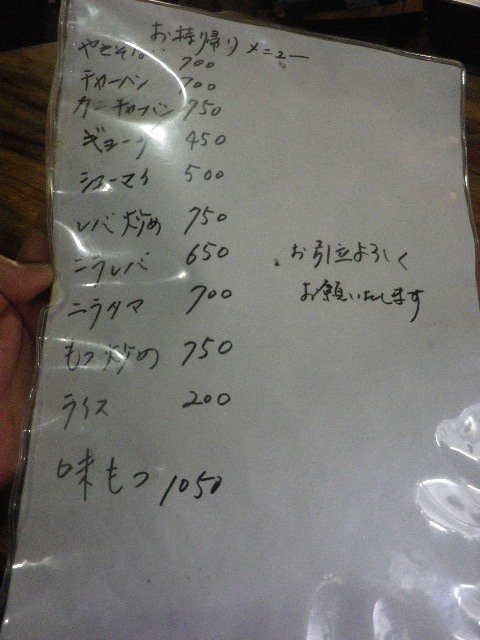 お持帰りメニュー
やきそば 700
チャーハン 700
カニチャーハン 750
ギョーザ 450
シューマイ 500
レバ炒め 750
ニラレバ 650
ニラタマ 700
もつ炒め 750
ライス 200
味もつ 1050
お引立よろしく
お願いいたします